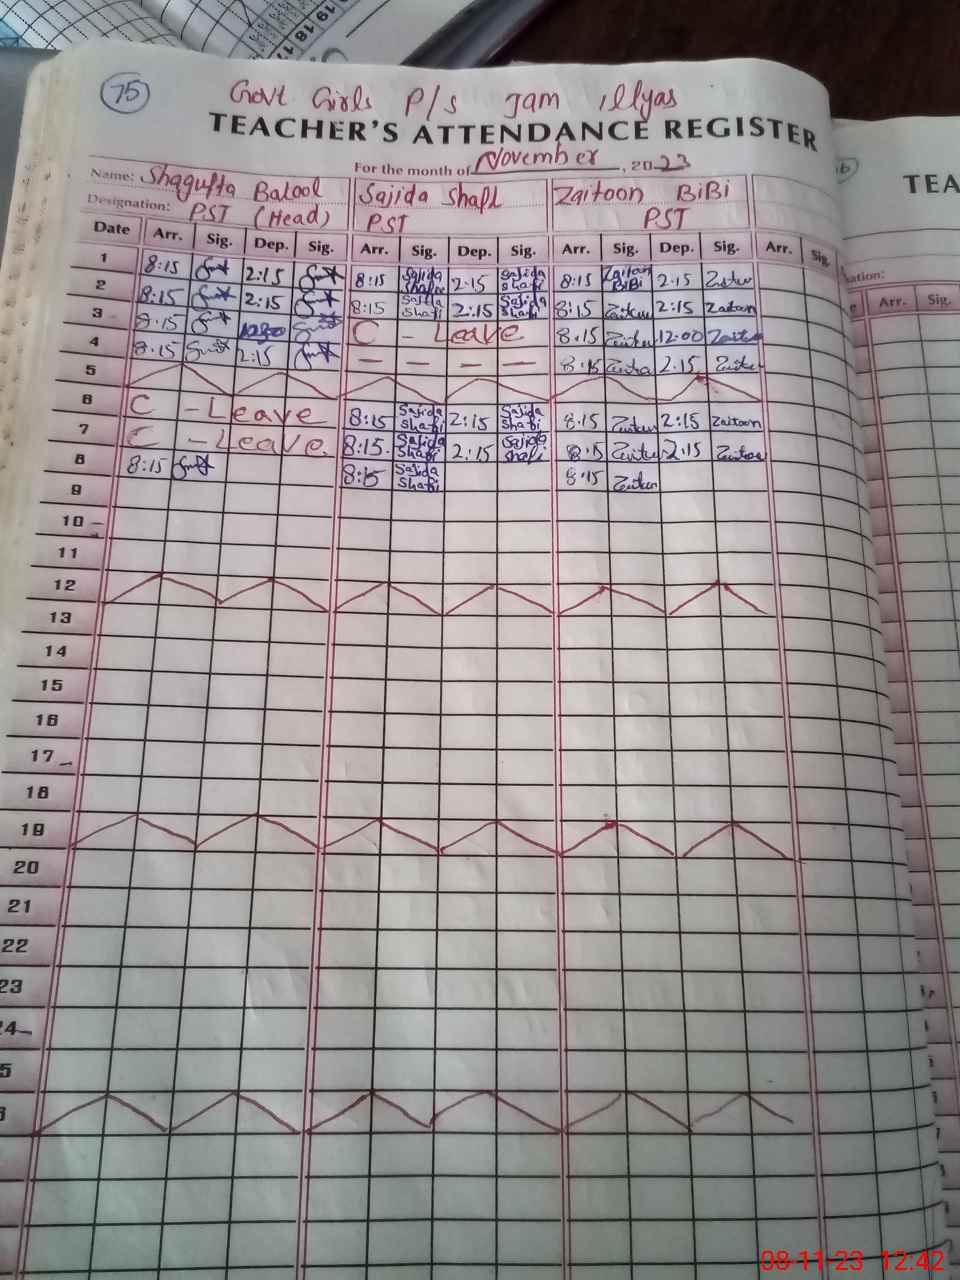 75
Govt Girls P/S Jam Illyas
TEACHER'S ATTENDANCE REGISTER
For the month of November, 2023
Name: Shagufta Batool Sajida Shafi Zaitoon BiBi
Designation: PST (Head) PST PST
Date Arr. Sig. Dep. Sig. Arr. Sig. Dep. Sig. Arr. Sig. Dep. Sig. Arr. Sig.
1 8:15 2:15 8:15 Sajida Shafi 2:15 Sajida Shafi 8:15 Zaitoon BiBi 2:15
2 8:15 2:15 8:15 Sajida Shafi 2:15 Sajida Shafi 8:15 2:15 Zaitoon
3 8:15 C - Leave 8:15 12:00
4 8:15 2:15 — — — — 8:15 2:15
5
6 C - Leave 8:15 Sajida Shafi 2:15 Sajida Shafi 8:15 2:15 Zaitoon
7 C - Leave. 8:15. Sajida Shafi 2:15 Sajida Shafi 8:15 2:15
8 8:15 8:15 Sajida Shafi 8:15
9
10
11
12
13
14
15
16
17
18
19
20
21
22
23
24
5
TEA
Arr. Sig.
08-11-23 12:42